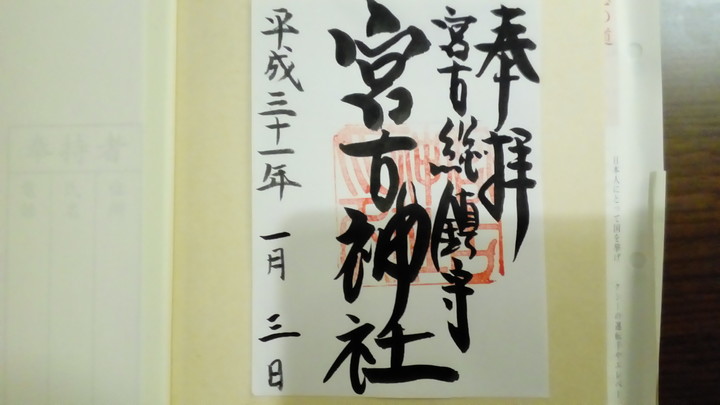 奉拝
宮古総鎮守
宮古神社
平成三十一年 一月 三日